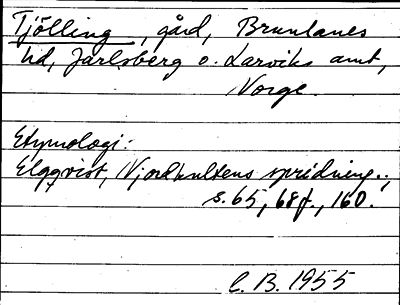 Tjölling, gård, Brunlanes
hd, Jarlsberg o. Larviks amt,
Norge.
Etymologi:
Elgqvist, Njordkultens spridning.,
s. 65, 68 f., 160.
C. B. 1955